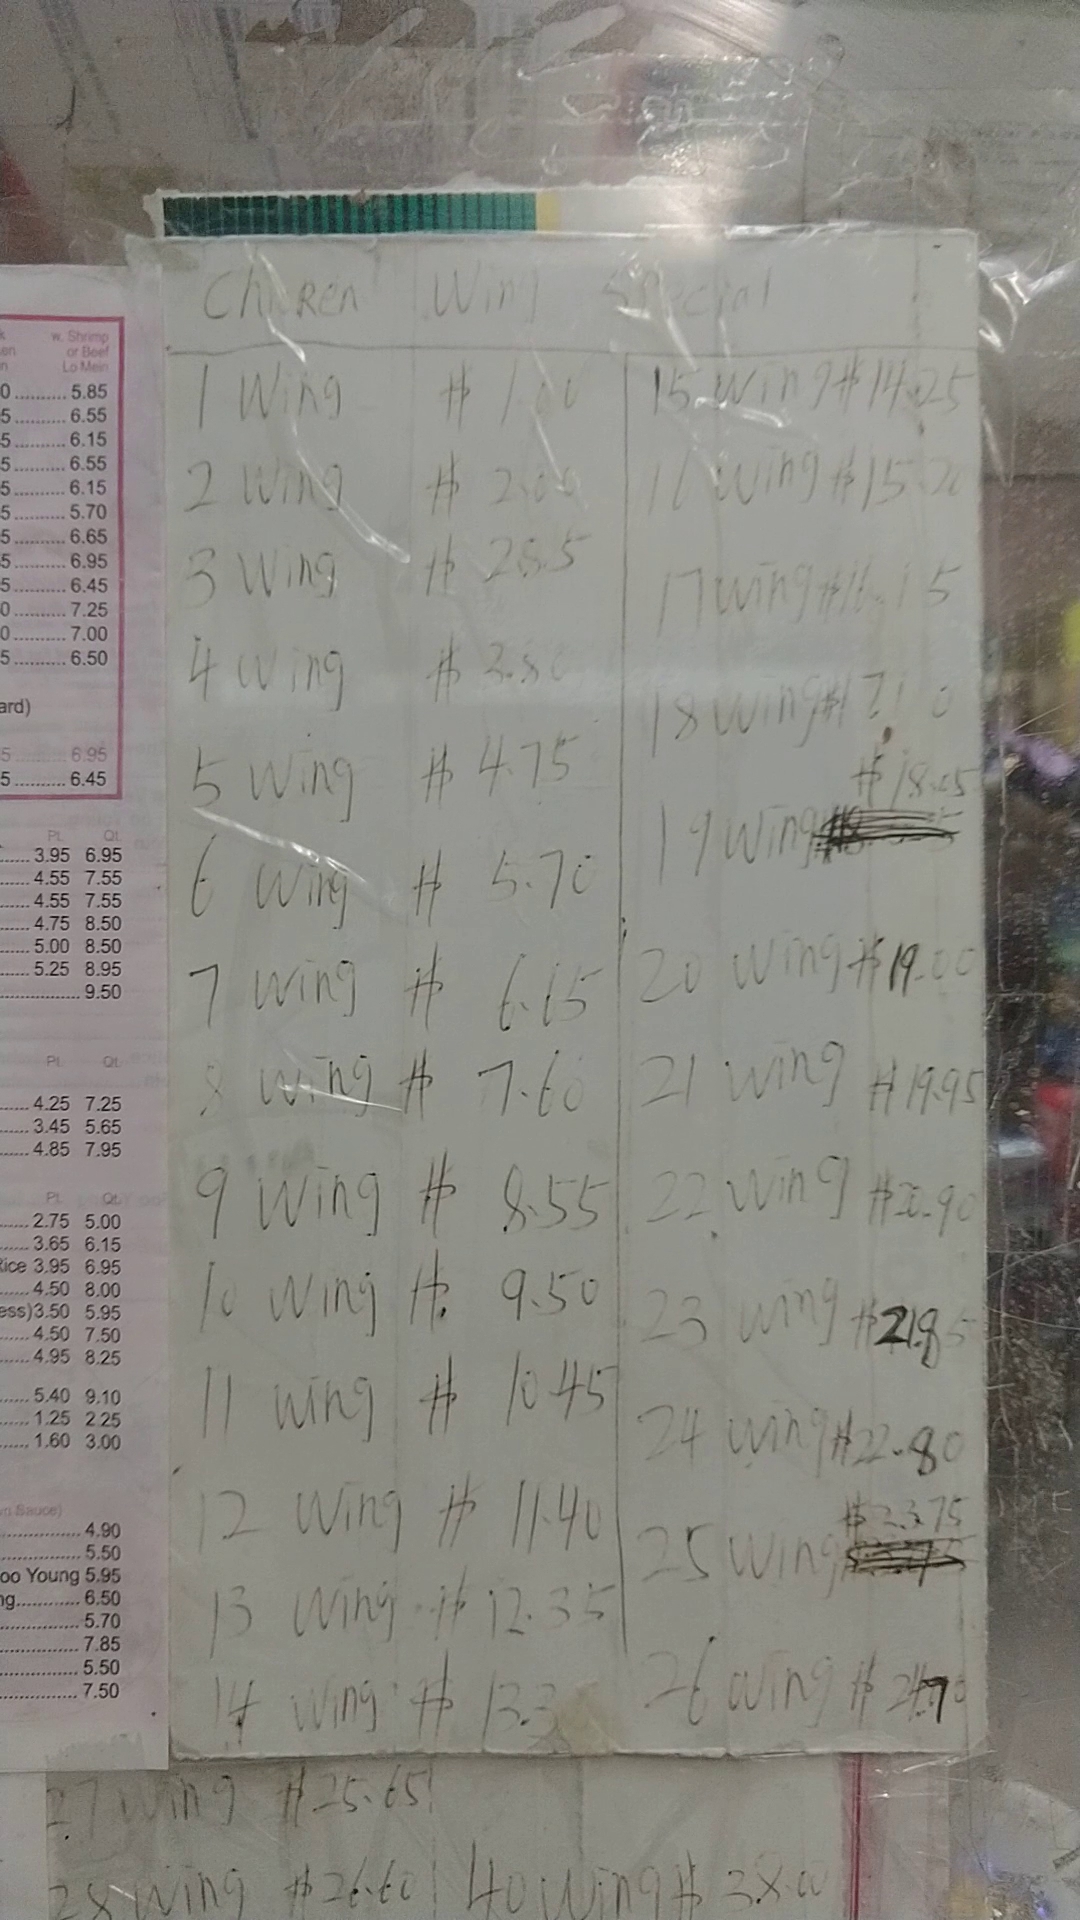 Chicken Wing Special
1 Wing $ 1.00
2 Wing $ 2.00
3 Wing $ 28.5
4 Wing $ 3.80
5 Wing $ 4.75
6 Wing $ 5.70
7 Wing $ 6.65
8 Wing $ 7.60
9 Wing $ 8.55
10 Wing $ 9.50
11 Wing $ 10.45
12 Wing $ 11.40
13 Wing $ 12.35
14 Wing $
15 Wing $14.25
16 Wing $15.20
17 Wing $16.15
18 Wing $17.10
19 Wing
20 Wing $19.00
21 Wing $19.95
22 Wing $20.90
23 Wing $21.85
24 Wing $22.80
25 Wing $23.75
26 Wing $24.70
27 Wing $25.65
28 Wing $26.60
40 Wing $38.00
w. Shrimp
or Beef
Lo Mein
5.85
6.55
6.15
6.55
6.15
5.70
6.65
6.95
6.45
7.25
7.00
6.50
6.95
6.45
Pt. Qt.
3.95 6.95
4.55 7.55
4.55 7.55
4.75 8.50
5.00 8.50
5.25 8.95
9.50
Pt. Qt.
4.25 7.25
3.45 5.65
4.85 7.95
Pt. Qt.
2.75 5.00
3.65 6.15
Rice 3.95 6.95
4.50 8.00
3.50 5.95
4.50 7.50
4.95 8.25
5.40 9.10
1.25 2.25
1.60 3.00
Sauce)
4.90
5.50
Young 5.95
6.50
5.70
7.85
5.50
7.50